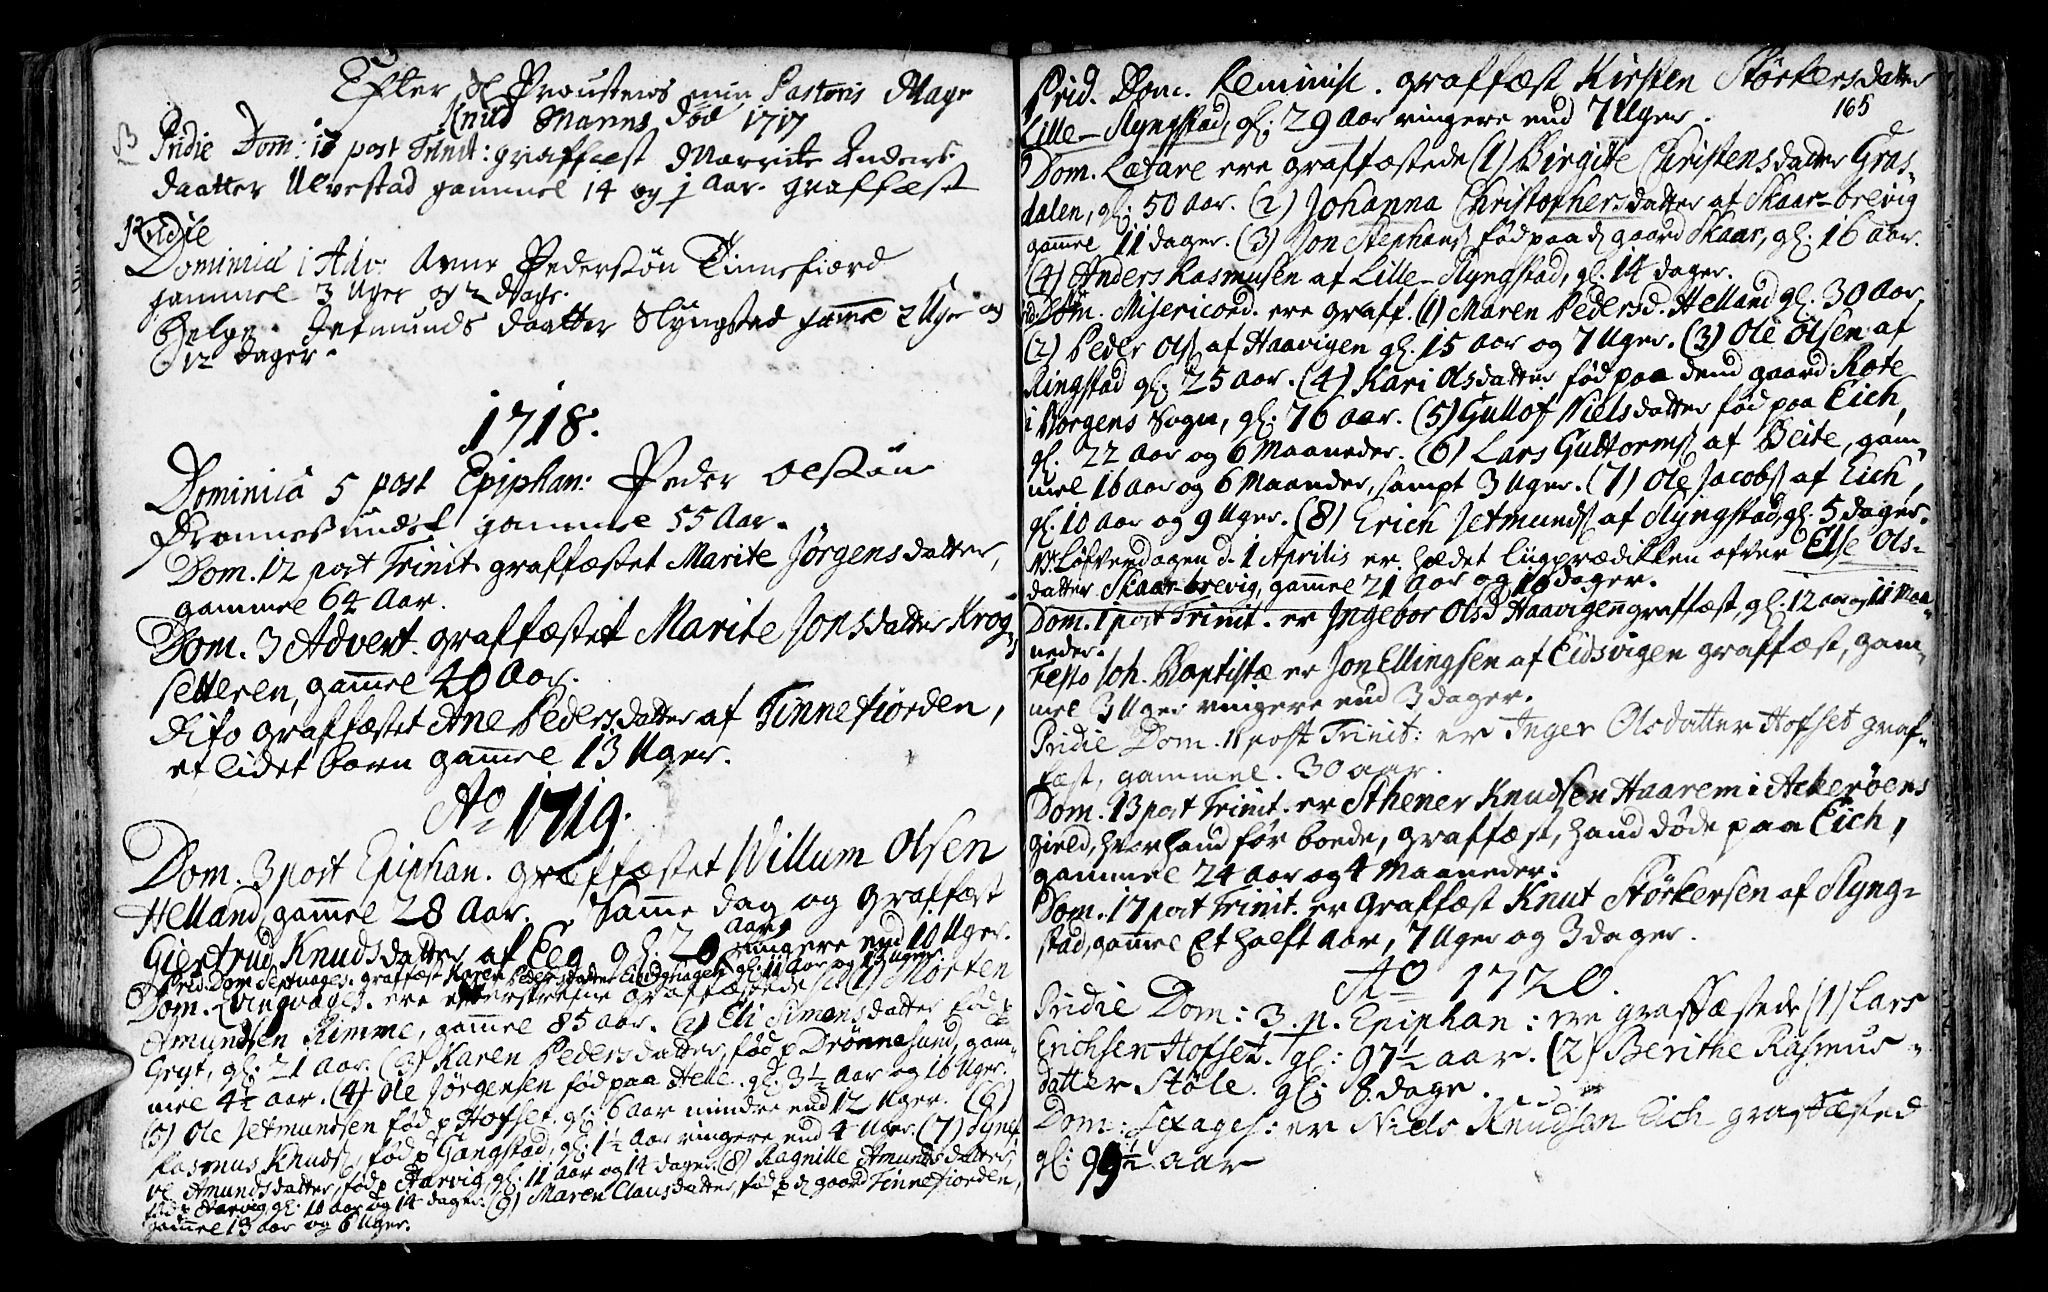 Efter Sl Proustens min Pastoris Mag:r
Knud Manns død 1717
Pridie Dom: 17 post Trinit: graffæst Marrite Anders
daatter Ulvestad gammel 14 og 1/2 Aar. graffæst
Pridie
Dominica 1 Adv: Arne Pedersøn Tinnefiord
gammel 3 Uger og 2 Dage.
Helge Jetmunds daatter Slyngstad gammel 2 Uger og
12 dager.
1718.
Dominica 5 post Epiphan: Peder Olsøn
Drønnesundet gammel 55 Aar.
Dom. 12 post Trinit. graffæstet Marite Jørgensdatter,
gammel 64 Aar.
Dom. 3 Advent. graffæstet Marite Jonsdatter Krog-
setteren, gamel 40 Aar.
Dito graffæstet Ane Pedersdatter af Tinnefiorden,
et lidet barn gamel 13 Uger.
Ao 1719.
Dom. 3 post Epiphan. graffæstet Willum Olsen
Helland gamel 28 Aar. Same dag og graffæst
Giertrud Knudsdatter af Eeg gl: 20 Aar ringere end 10 Uger.
Prid. Dom Septuages. graffæst Karen Pedersdatter gl: 11 Aar og 13 Uger.
Dom. Qvinqvages. ere efterskrefne graffæstede (1) Morten
Amundsen Rimme, gamel 85 aar. (2) Eli Simensdatter fød p
Gryt, gl: 21 Aar. (3) Karen Pedersdatter, fød p Drönnesund, gam-
mel 4½ aar. (4) Ole Jørgensen fød paa Helle. gl: 3½ Aar og 16 Uger.
(5) Ole Jetmundsen fød p Hofset. gl: 6 aar mindre end 12 Uger. (6)
Rasmus Knuds, fød p Gangstad, gl: 1½ Aar ringere end 4 Uger. (7) Syne-
ve Amundsdatter, fød p Aarvig gl: 11 aar og 14 dager. (8) Ragnille Amundsdatter,
fød p Aarvig, gl: 10 aar og 14 dager. (9) Maren Clausdatter, fød p d gaard Tinnefiorden,
gamel 13 aar og 6 Uger.
Prid. Dom. Reminisc. graffæst Kirsten Störkersdatter
165
Lille-Slyngstad, gl: 29 Aar ringere end 7 Uger.
Dom. Lætare ere graffæstede (1) Birgitte Christensdatter Gras-
dalen, gl: 50 Aar. (2) Johanna Christophersdatter af Skaar-brevig
gamel 11 dager. (3) Jon Stephans fød paa d gaard Skaar, gl: 16 aar.
(4) Anders Rasmusen af Lille-Slyngstad, gl: 14 dager.
Dom. Misericord. ere graff. (1) Maren Pedersd. Helland gl: 30 Aar,
(2) Peder Ols af Haavigen gl: 15 aar og 7 Uger. (3) Ole Olsen af
Ringstad gl: 25 aar. (4) Kari Olsdatter fød paa dend gaard Rote
i Norgens Sogn, gl: 76 aar. (5) Gullof Nielsdatter fød paa Eich,
gl: 22 aar og 6 Maaneder. (6) Lars Guttorms af Beite, gam-
mel 16 aar og 6 Maaneder, sampt 3 Uger. (7) Ole Jacobs af Eich,
gl: 10 aar og 9 Uger. (8) Erich Jetmunds af Slyngstad, gl: 5 dager.
NB. Løfverdagen d. 1 Aprilis er holdet liigprædikken ofver Else Ols-
datter Skaar-brevig, gamel 21 aar og 10 dager.
Dom. 1 post Trinit. er Ingebor Olsd Haavigen graffæst, gl: 12 aar og 11 Maa-
neder.
Festo Joh. Baptistæ er Jon Ellingsen af Eidsvigen graffæst, gam-
mel 3 Uger ringere end 3 dager.
Pridie Dom. 11 post Trinit: er Inger Olsdatter Hofset graf-
fæst, gammel. 30 aar.
Dom. 13 post Trinit. er Sthener Knudsen Haarem i Ackerøens
gield, hvor hand før boede, graffæst, hand døde paa Eich,
gammel 24 aar og 4 Maaneder.
Dom. 17 post Trinit. er graffæst Knut Störkersen af Slyng-
stad, gamel Et halft Aar, 7 Uger og 3 dager.
Ao 1720.
Pridie Dom: 3. p. Epiphan: ere graffæstede (1) Lars
Erichsen Hofset. gl: 97½ aar. (2) Berithe Rasmus-
datter Støle. gl: 8 dage.
Dom: Sexages: er Niels Knudsøn Eich graffæsted
gl: 99½ aar